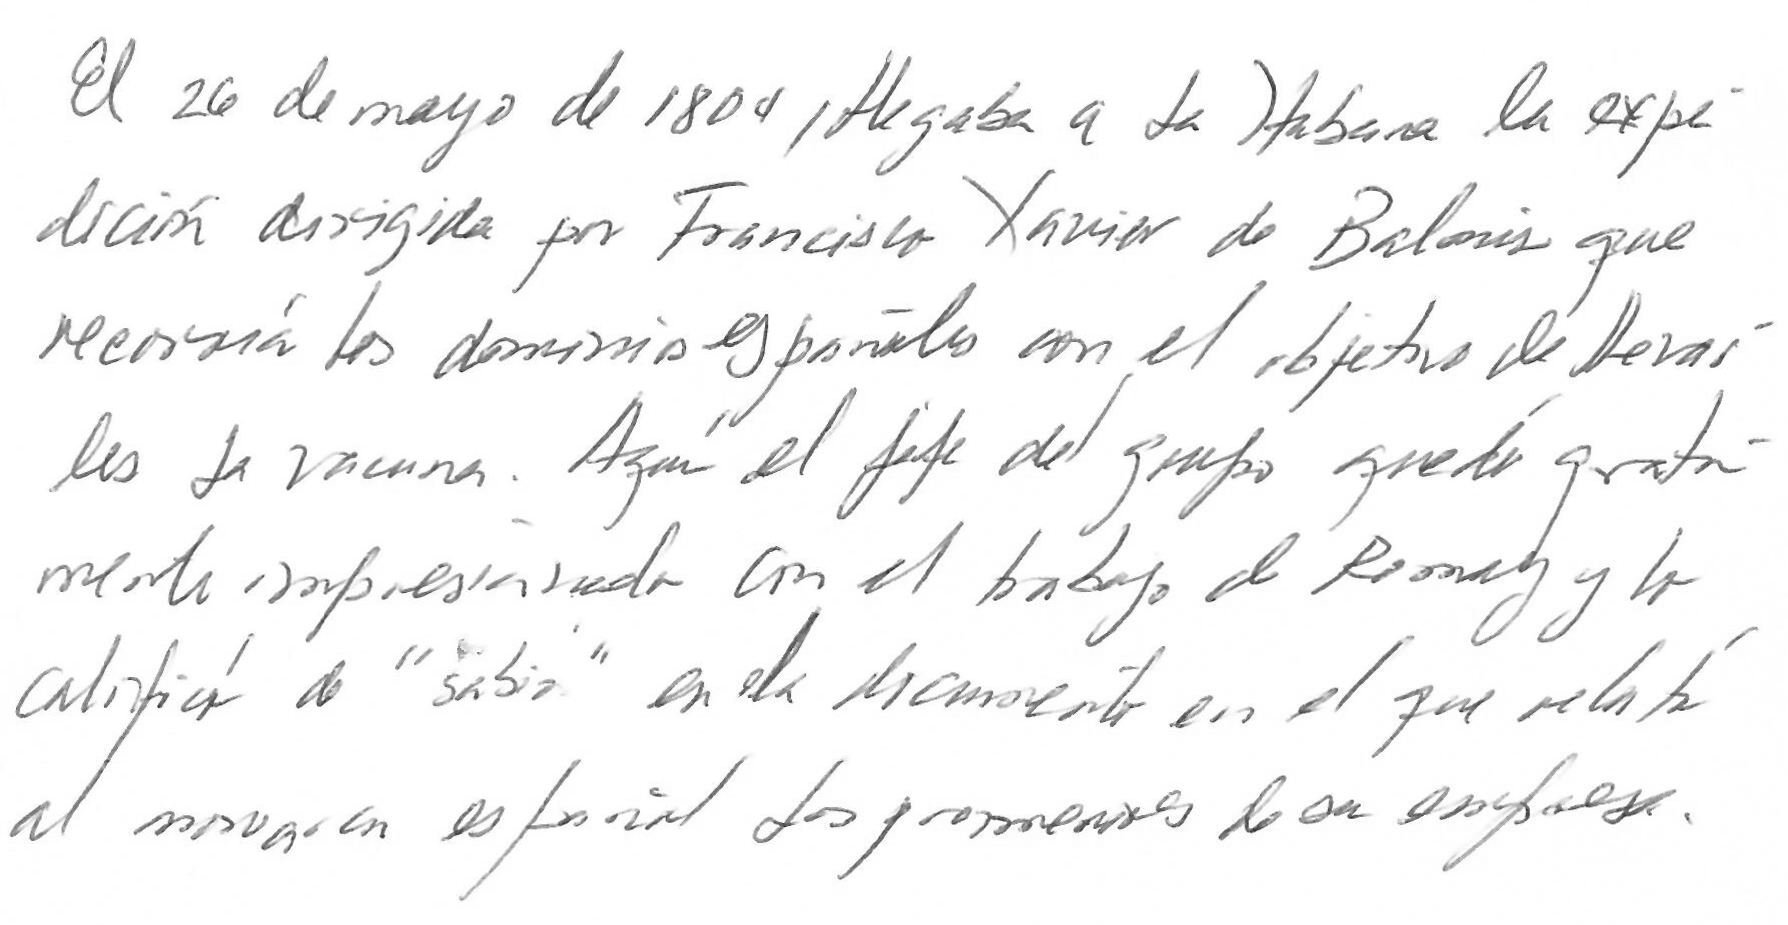 El 26 de mayo de 1804, llegaba a La Habana la expe-
dición dirigida por Francisco Xavier de Balmis que
recorría los dominios españoles con el objetivo de llevar-
les la vacuna. Aquí el jefe del grupo quedó grata-
mente impresionado con el trabajo de Romay y lo
calificó de "sabio" en el documento en el que relató
al monarca español los pormenores de su empresa.